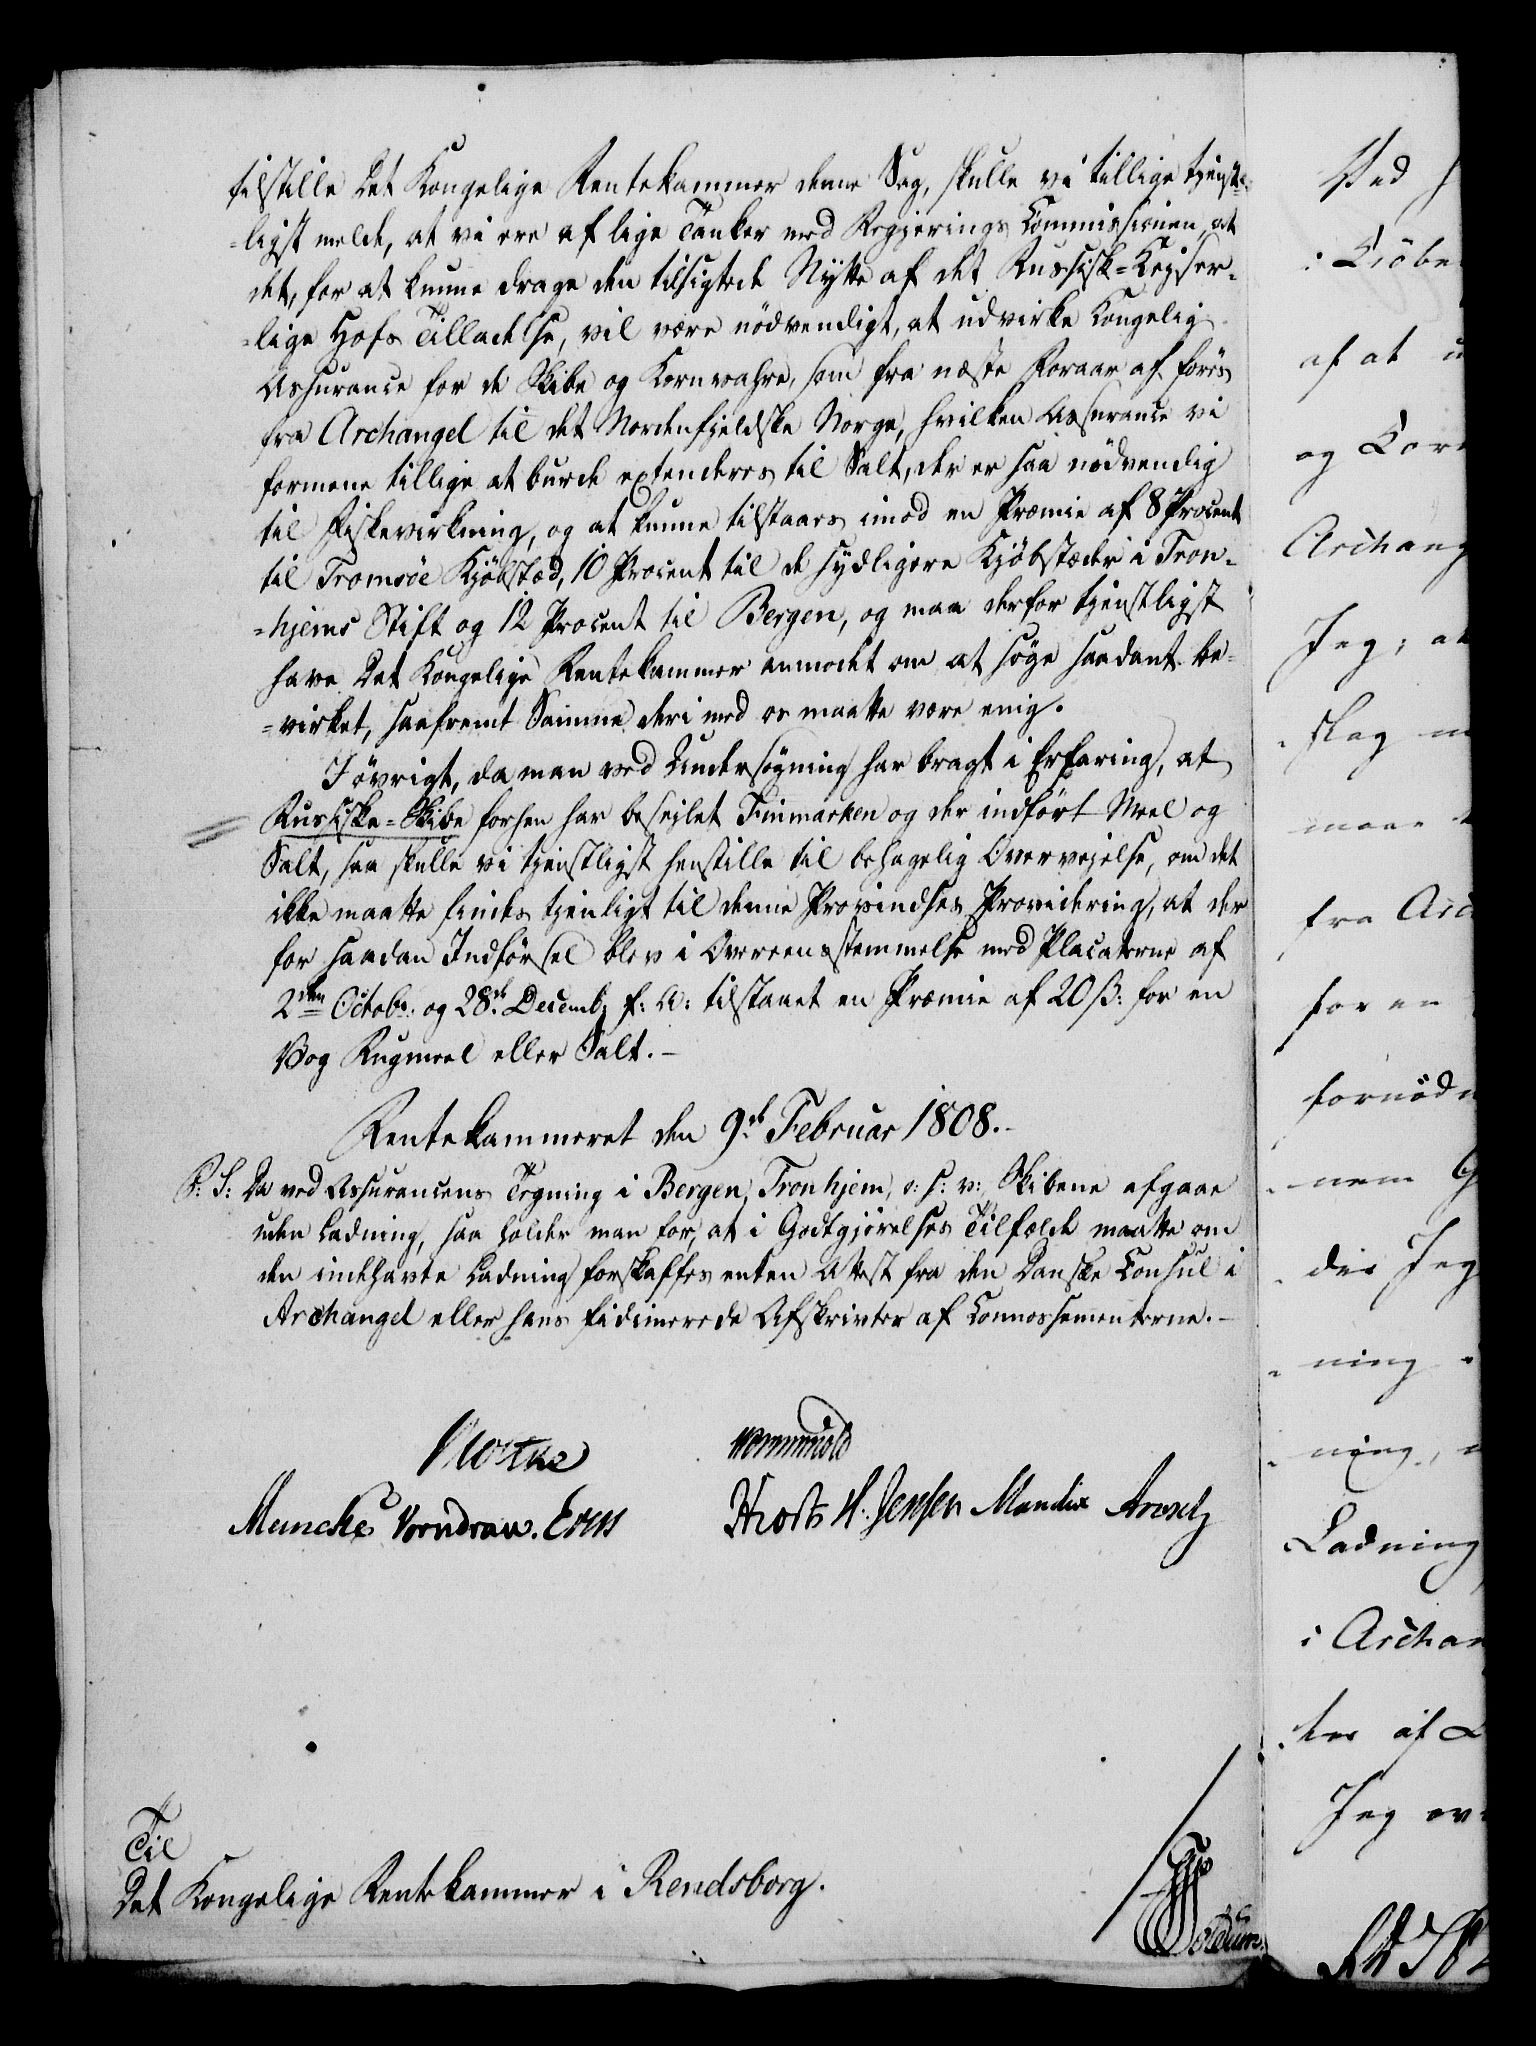 tilstille Det Kongelige Rentekammer denne Sag, skulle vi tillige tjenst-
=ligst melde, at vi ere af lige Tanker med Regjerings Commissionen, at
det, for at kunne drage den tilsigtede Nytte af det Russisk=Kejser-
=lige Hofs Tilladelse, vil være nödvendigt, at udvirke Kongelig
Assurance for de Skibe og Kornvahre, som fra næste Foraar af föres
fra Archangel til det Nordenfjeldske Norge, hvilken Assurance vi
formene tillige at burde extenderes til Salt, der er saa nödvendig
til Fiskevirkning, og at kunne tilstaaes imod en Præmie af 8 Procent
til Tromsöe Kjöbstæd, 10 Procent til de sydligere Kjöbstæder i Tron-
=hjems Stift og 12 Procent til Bergen, og maa derfor tjenstligst
have Det Kongelige Rentekammer anmodet om at söge saadant be-
=virket, saafremt Samme deri med os maatte være enig.
I övrigt, da man ved Undersögning har bragt i Erfaring, at
Russiske=Skibe forhen har besejlet Finmarken og der indfört Meel og
Salt, saa skulle vi tjenstligst henstille til behagelig Overvejelse, om det
ikke maatte findes tjenligt til denne Provindses Providering, at der
for saadan Indförsel blev i Overeensstemmelse med Placaterne af
2den Octobr. og 28de Decembr f: A: tilstaaet en Præmie af 20 ß: for en
Vog Rugmeel eller Salt.-
Rentekammeret den 9de Februar 1808.-
P: S: Da ved Assurancens Tegning i Bergen, Tronhjem, o: s: v: Skibene afgaae
uden Ladning, saa holder man for, at i Godtgjörelses Tilfælde maatte om
den indehavte Ladning forskaffes enten Attest fra den Danske Consul i
Archangel eller hans fidimerede Afskrivter af Connossementerne.-
Moltke
Wormskiold
Muncke Vorndran. Erm
H. Jensen Mandix
Til
Det Kongelige Rentekammer i Rendsborg.
Ved
i Kiöbe
af at
og Kor
Archang
Jeg, at
slag
maae
fra Arc
for en
fornöd
nem
der Jeg
ning
ning,
Ladning
i Archan
ter af
Jeg